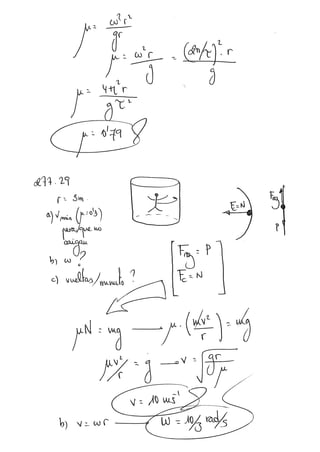 μ = ω²r²/gr
μ = ω²r/g = (2π/τ)²·r/g
μ = 4π²r/gτ²
μ = 0'79
277.29
r = 3m
a) Vmin (μ=0'3)
para que no
caigan
b) ω?
c) vueltas/minuto?
E=N
Frg
P
Frg = P
Fc = N
μN = mg → μ·(mv²/r) = mg
μv²/r = g → v = √(gr/μ)
v = 10 ms⁻¹
b) v = ωr → ω = 10/3 rad/s